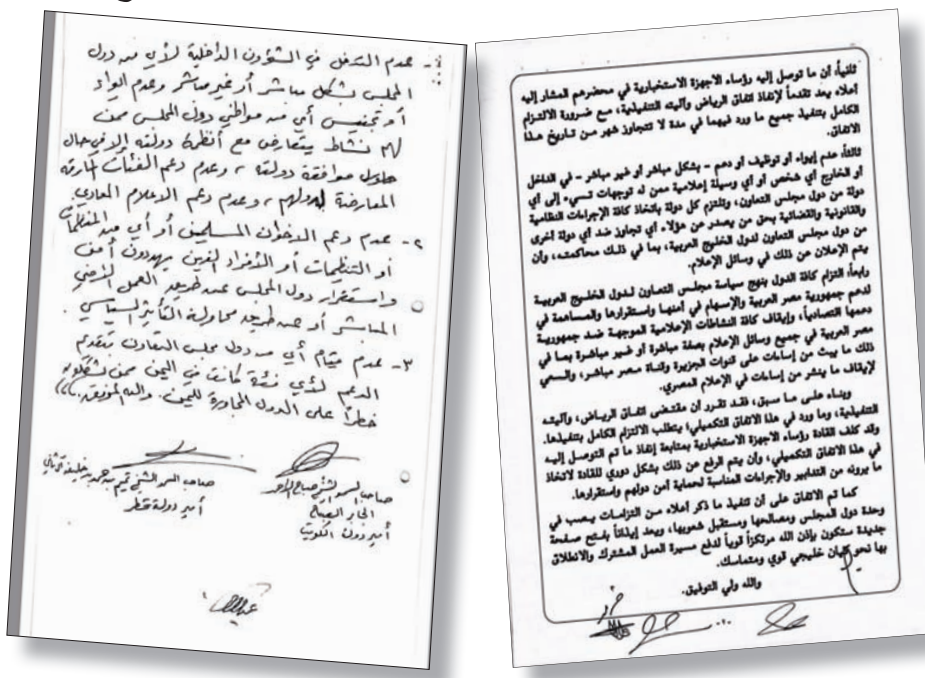 ١- عدم التدخل في الشؤون الداخلية لأي من دول
المجلس بشكل مباشر أو غير مباشر وعدم ايواء
أو تجنيس أي من مواطني دول المجلس ممن
لهم نشاط يتعارض مع أنظمة دولته إلا في حال
موافقة دولته ، وعدم دعم الفئات المارقة
المعارضة لدولهم ، وعدم دعم الاعلام المعادي.
٢- عدم دعم الاخوان المسلمين أو أي من المنظمات
أو التنظيمات أو الأفراد الذين يهددون أمن
واستقرار دول المجلس عن طريق العمل الأمني
المباشر أو عن طريق محاولة التأثير السياسي .
٣- عدم قيام أي من دول مجلس التعاون بتقديم
الدعم لأي فئة كانت في اليمن ممن يشكلون
خطراً على الدول المجاورة لليمن. والله الموفق،،،
صاحب السمو الشيخ صباح الأحمد
الجابر الصباح
أمير دولة الكويت
صاحب السمو الشيخ تميم بن حمد بن خليفة آل ثاني
أمير دولة قطر
ثانياً، أن ما توصل إليه رؤساء الاجهزة الاستخبارية في محضرهم المشار إليه
أعلاه يعد تقدماً لإنفاذ اتفاق الرياض وآليته التنفيذية، مع ضرورة الالتزام
الكامل بتنفيذ جميع ما ورد فيهما في مدة لا تتجاوز شهر من تاريخ هذا
الاتفاق.
ثالثاً، عدم إيواء أو توظيف أو دعم - بشكل مباشر أو غير مباشر - في الداخل
أو الخارج أي شخص أو أي وسيلة إعلامية ممن له توجهات تسيء إلى أي
دولة من دول مجلس التعاون، وتلتزم كل دولة باتخاذ كافة الإجراءات النظامية
والقانونية والقضائية بحق من يصدر عن هؤلاء أي تجاوز ضد أي دولة أخرى
من دول مجلس التعاون لدول الخليج العربية، بما في ذلك محاكمته، وأن
يتم الإعلان عن ذلك في وسائل الإعلام.
رابعاً، التزام كافة الدول بنهج سياسة مجلس التعاون لدول الخليج العربية
لدعم جمهورية مصر العربية والإسهام في أمنها واستقرارها والمساهمة في
دعمها اقتصادياً، وإيقاف كافة النشاطات الإعلامية الموجهة ضد جمهورية
مصر العربية في جميع وسائل الإعلام بصفة مباشرة أو غير مباشرة بما في
ذلك ما يبث من إساءات على قنوات الجزيرة وقناة مصر مباشر، والسعي
لإيقاف ما ينشر من إساءات في الإعلام المصري.
وبناء على ما سبق، فقد تقرر أن مقتضى اتفاق الرياض، وآليته
التنفيذية، وما ورد في هذا الاتفاق التكميلي، يتطلب الالتزام الكامل بتنفيذها.
وقد كلف القادة رؤساء الاجهزة الاستخبارية بمتابعة إنفاذ ما تم التوصل إليه
في هذا الاتفاق التكميلي، وأن يتم الرفع عن ذلك بشكل دوري للقادة لاتخاذ
ما يرونه من التدابير والإجراءات المناسبة لحماية أمن دولهم واستقرارها.
كما تم الاتفاق على أن تنفيذ ما ذكر أعلاه من التزامات يصب في
وحدة دول المجلس ومصالحها ومستقبل شعوبها، ويعد إيذاناً بفتح صفحة
جديدة ستكون بإذن الله مرتكزاً قوياً لدفع مسيرة العمل المشترك والانطلاق
بها نحو كيان خليجي قوي ومتماسك.
والله ولي التوفيق.